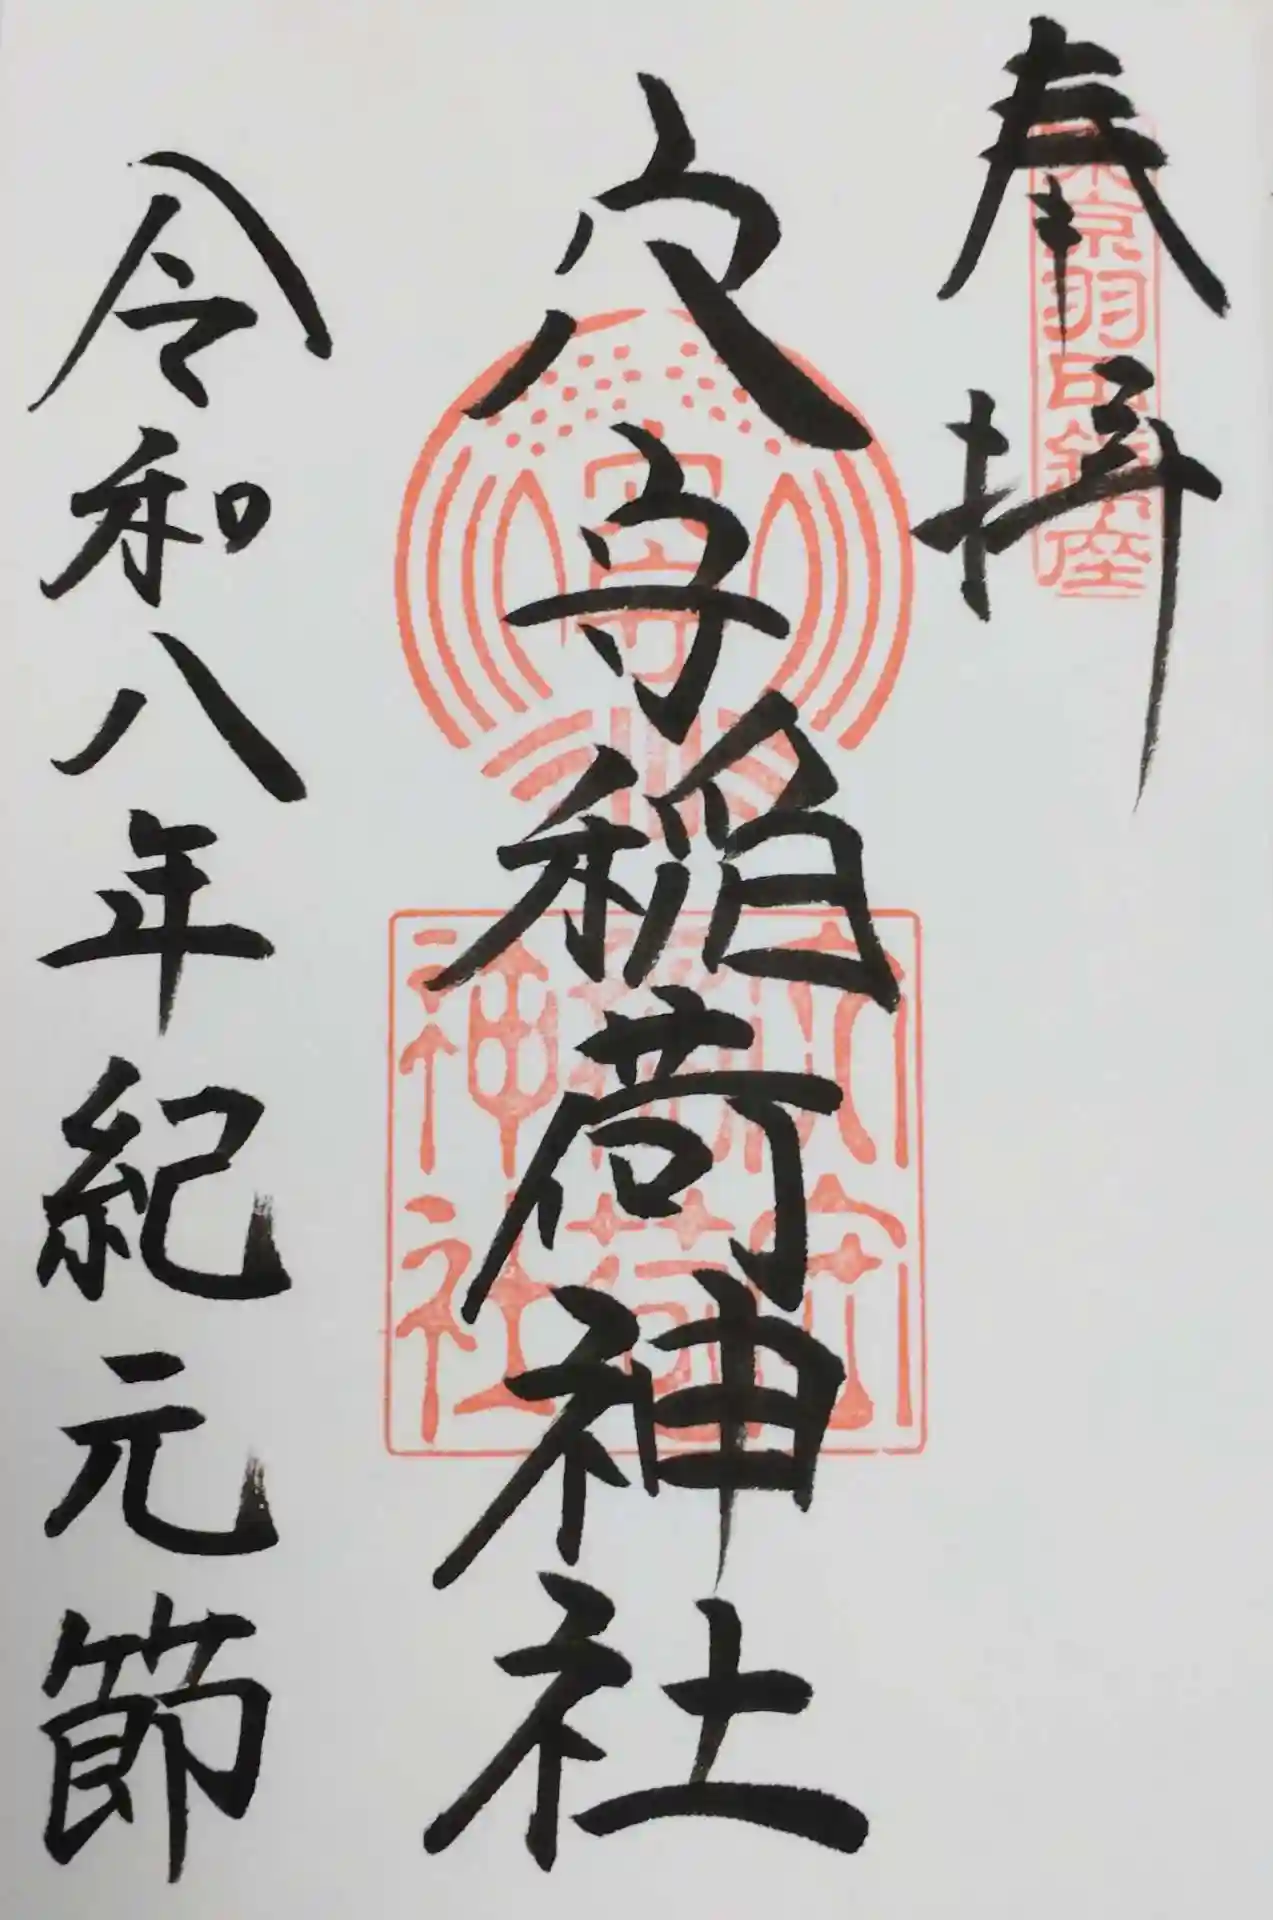 奉拝
東京羽田鎮座
穴守稲荷神社
穴守
穴守稲荷神社
令和八年紀元節